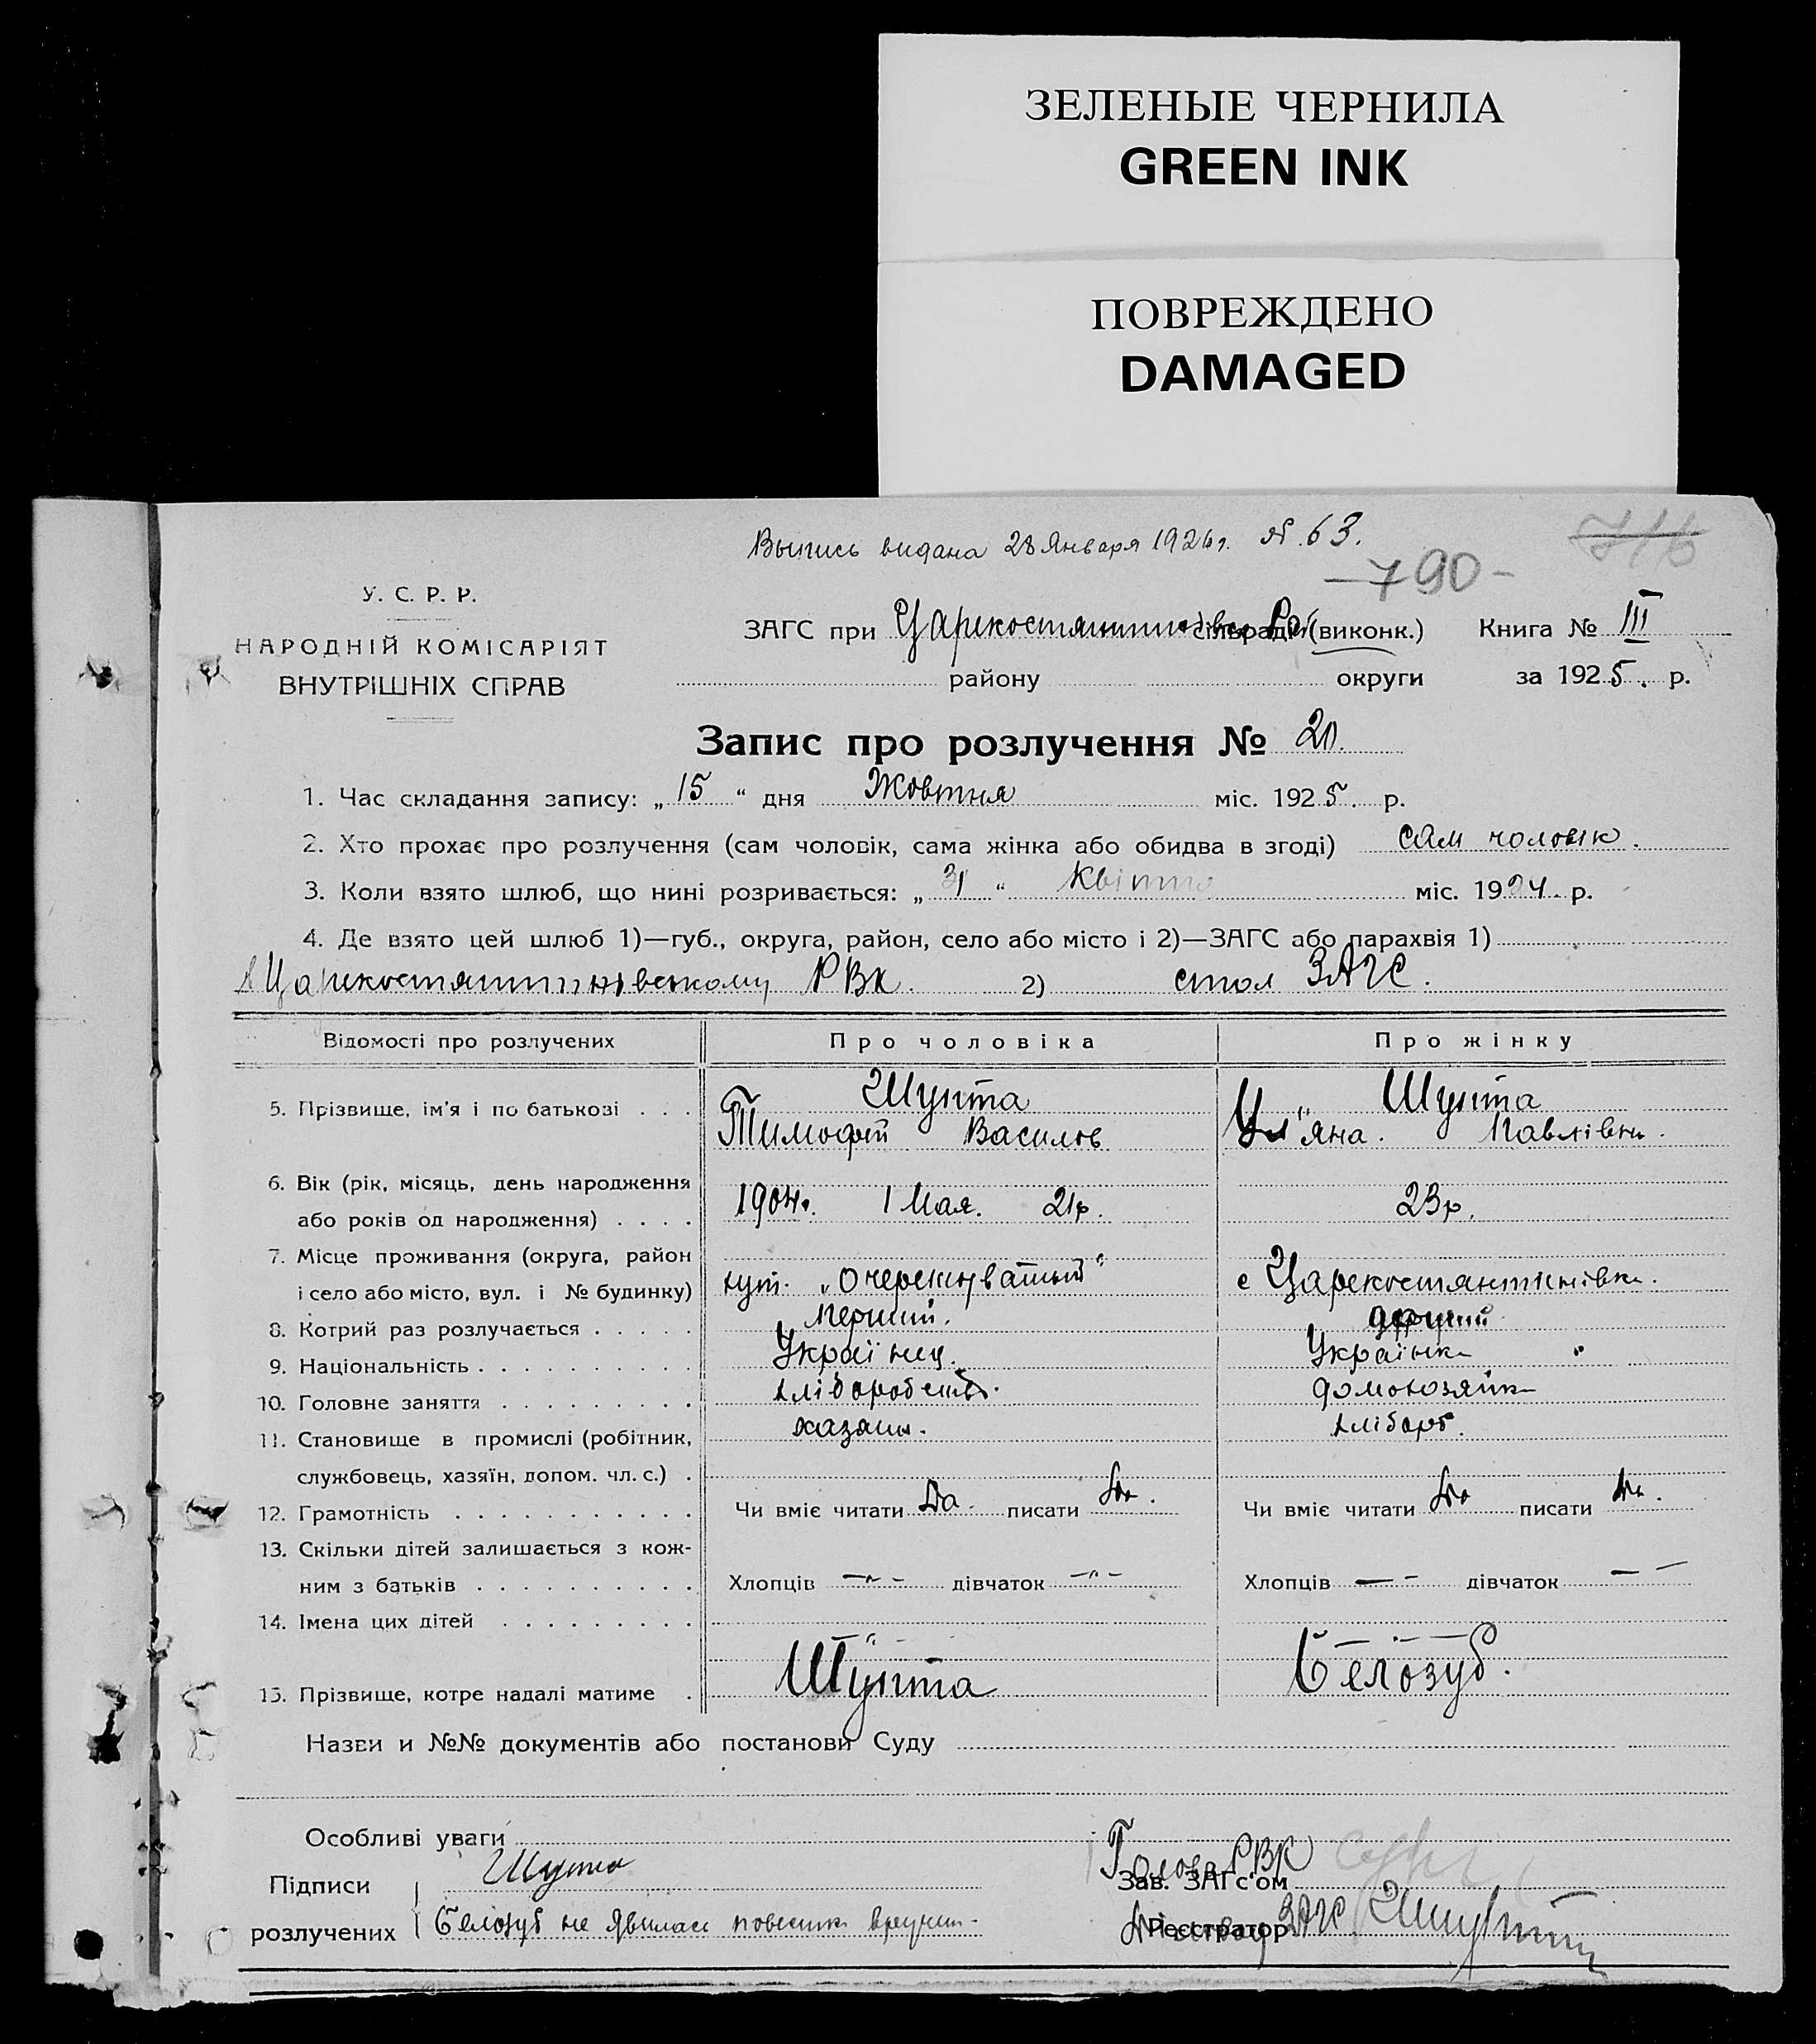 ЗЕЛЕНЫЕ ЧЕРНИЛА
GREEN INK
ПОВРЕЖДЕНО
DAMAGED
Выпись видана 28 Января 1926 г. № 63.
790
У. С. Р. Р.
НАРОДНІЙ КОМІСАРІЯТ
ВНУТРІШНІХ СПРАВ
ЗАГС при сільраді (виконк.) Книга № III
району округи за 1925. р.
Запис про розлучення № 20
1. Час складання запису: „15“ дня Жовтня міс. 1925. р.
2. Хто прохає про розлучення (сам чоловік, сама жінка або обидва в згоді) сам чоловік.
3. Коли взято шлюб, що нині розривається: „ “ міс. 1924. р.
4. Де взято цей шлюб 1)—губ., округа, район, село або місто і 2)—ЗАГС або парахвія 1)
РВК. 2) стол ЗАГС.
Відомості про розлучених Про чоловіка Про жінку
5. Прізвище, ім'я і по батькові . . . Шупта Шупта
Тимофій Василов Ул"яна. Павлівна.
6. Вік (рік, місяць, день народження
або років од народження) . . . . 1904 г. 1 Мая. 21 р. 23 р.
7. Місце проживання (округа, район
і село або місто, вул. і № будинку) хут. с Царекостянтинівка.
8. Котрий раз розлучається . . . . . перший.
9. Національність . . . . . . . . . . Українец. Українка
10. Головне заняття . . . . . . . . . хліборобств. домохозяйка
11. Становище в промислі (робітник, хазяин. хлібороб.
службовець, хазяїн, допом. чл. с.) .
12. Грамотність . . . . . . . . . . . Чи вміє читати Да. писати Да. Чи вміє читати Да писати Да.
13. Скільки дітей залишається з кож-
ним з батьків . . . . . . . . . . Хлопців —"- дівчаток —"- Хлопців — - дівчаток — —
14. Імена цих дітей . . . . . . . . .
15. Прізвище, котре надалі матиме . Шупта Белозуб.
Назви и №№ документів або постанови Суду
Особливі уваги
Підписи Шупта Голова РВК
Зав. ЗАГс'ом
розлучених Белозуб не явилась повестка вручен. Реєстратор ЗАГС